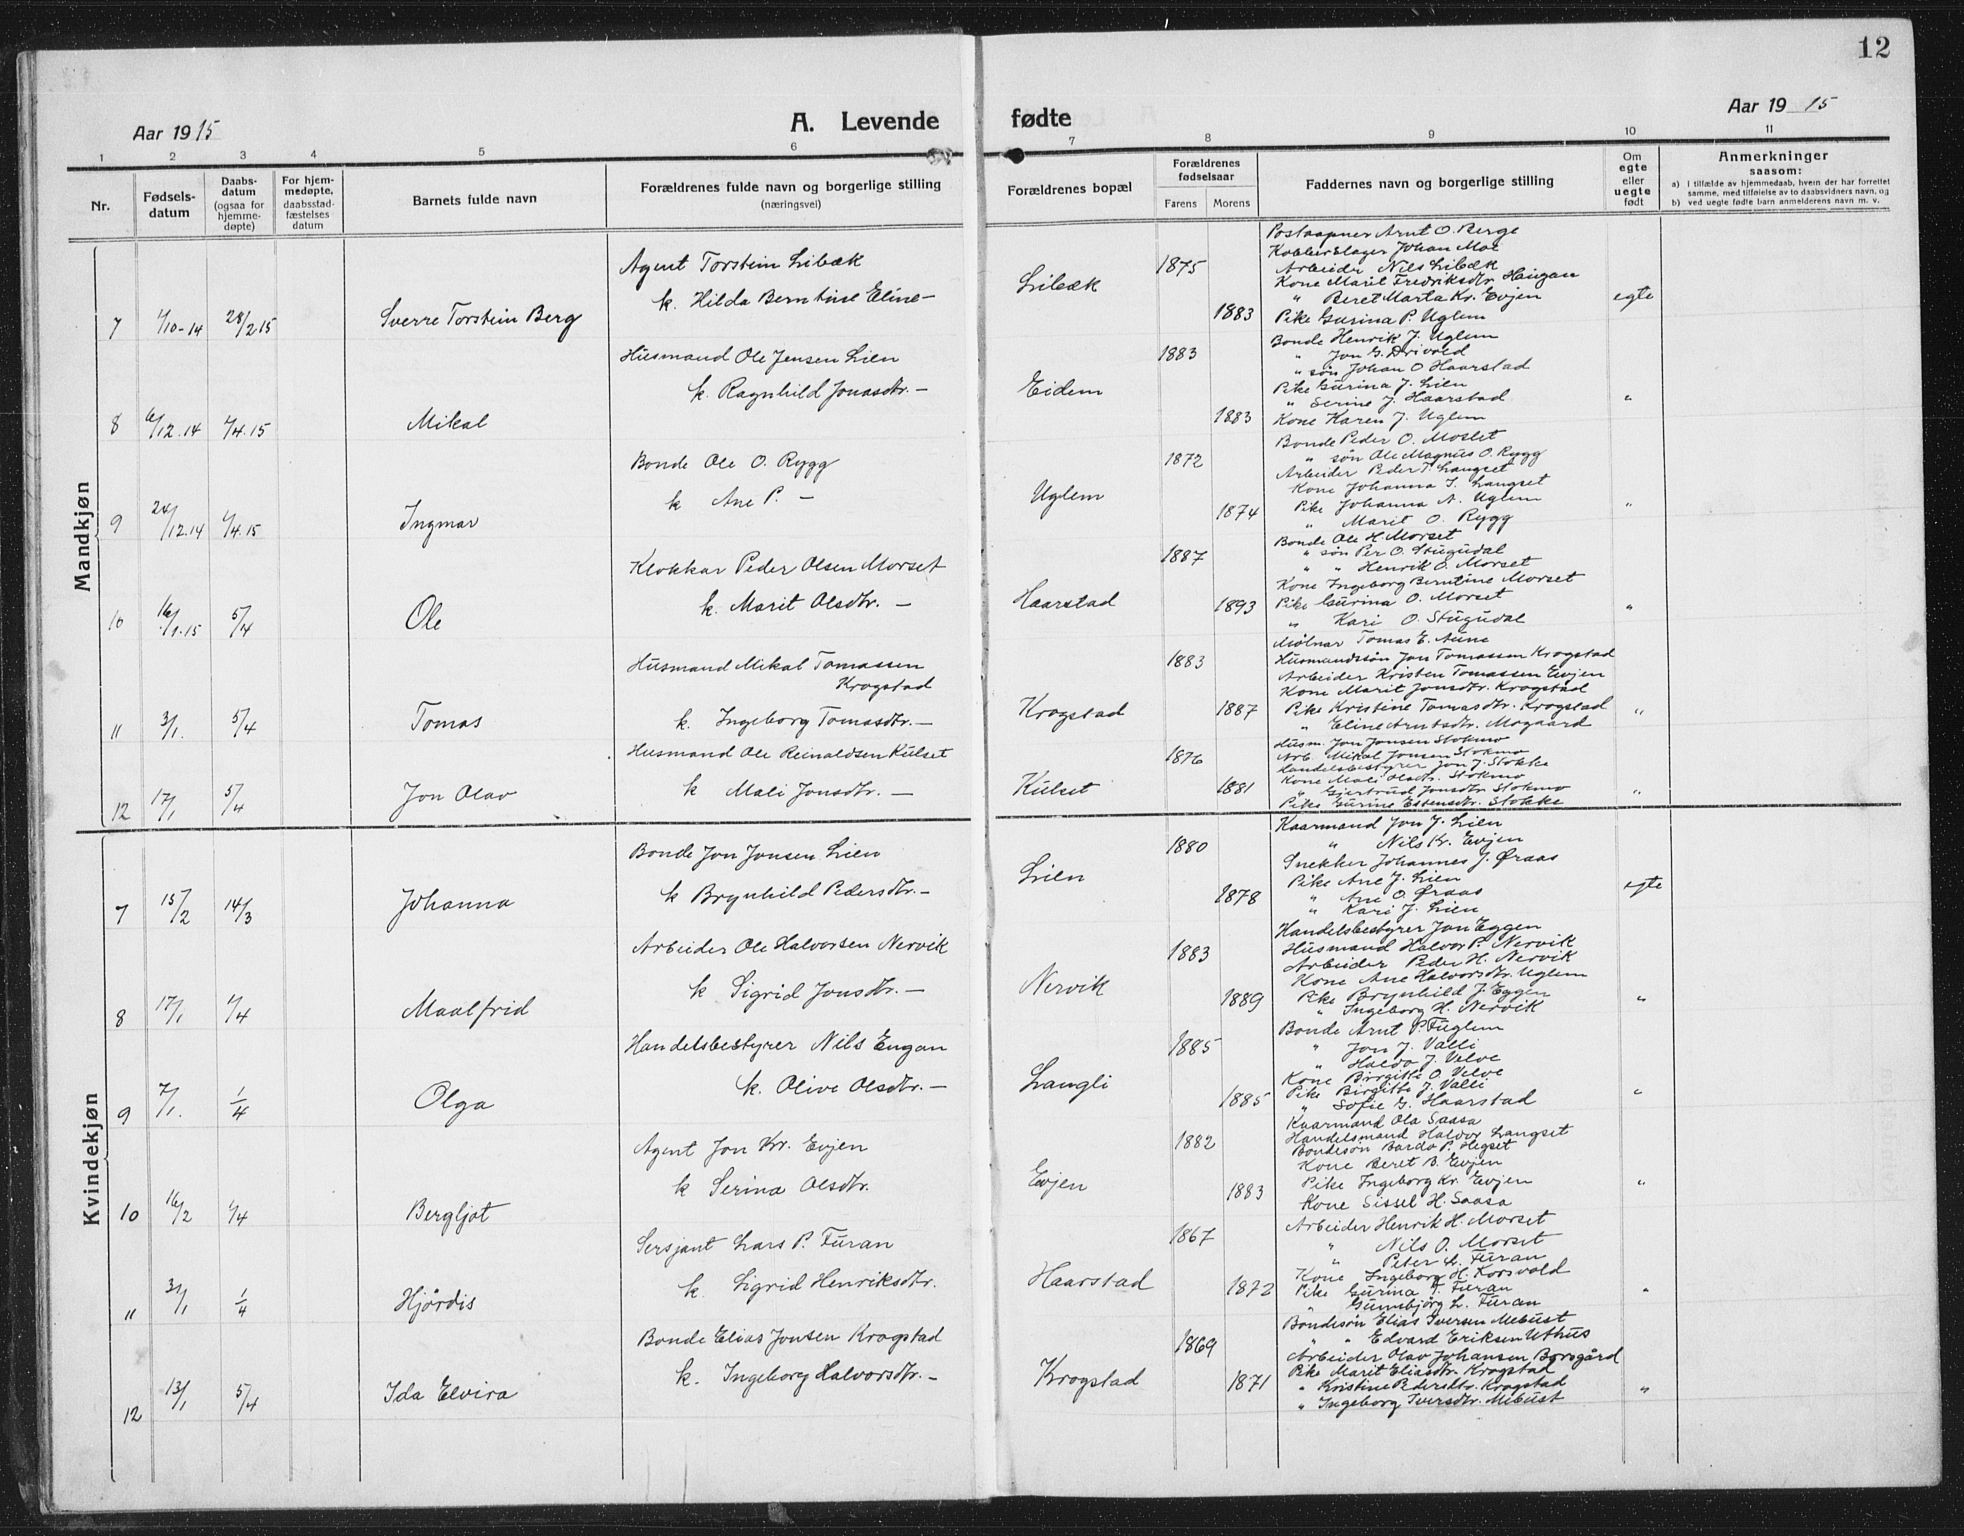 12
Aar 1915
A. Levende
fødte
Aar 1915
1 2 3 4 5 6 7 8 9 10 11
Nr.
Fødsels-
datum
Daabs-
datum
(ogsaa for
hjemme-
døpte)
For hjem-
medøpte,
daabsstad-
fæstelses
datum
Barnets fulde navn
Forældrenes fulde navn og borgerlige stilling
(næringsvei)
Forældrenes bopæl
Forældrenes
fødselsaar
Farens
Morens
Faddernes navn og borgerlige stilling
Om
egte
eller
uegte
født
Anmerkninger
saasom:
a) I tilfælde av hjemmedaab, hvem der har forrettet
samme, med tilføielse av to daabsvidners navn, og
b) ved uegte fødte barn anmelderens navn m. v.
Mandkjøn
7 1/10-14 28/2 15 Sverre Torstein Berg
Agent Torstein Libæk
k. Hilda Berntine Eline —
Libæk
1875
1883
Postaapner Arnt O. Berge
Kobberslager Johan Moe
Arbeider Nils Libæk
Kone Marit Fredriksdtr. Haugan
" Beret Marta Kr. Evjen
Pike Gurina P. Uglem
egte
8 6/12.14 1/4.15 Mikal
Husmand Ole Jensen Lien
k. Ragnhild Jonasdtr. —
Eidem
1883
1883
Bonde Henrik J. Uglem
" Jon G. Drivold
" søn Johan O Haarstad
Pike Gurina J. Lien
" Serine J. Haarstad
Kone Karen J. Uglem
"
9 24/12.14 1/4.15 Ingmar
Bonde Ole O. Rygg
k Ane P. —
Uglem
1872
1874
Bonde Peder O. Moslet
" søn Ole Magnus O. Rygg
Arbeider Peder T. Langset
Kone Johanna I. Langset
Pike Johanna A. Uglem
" Marit O. Rygg
"
10 16/1.15 5/4 Ole
Klokkar Peder Olsen Morset
k. Marit Olsdtr. —
Haarstad
1887
1893
Bonde Ole H. Morset
" søn Per O. Stugudal
" " Henrik O. Morset
Kone Ingeborg Berntine Morset
Pike Gurina O. Morset
" Kari O. Stugudal
"
11 3/1. 5/4 Tomas
Husmand Mikal Tomassen
Krogstad
k. Ingeborg Tomasdtr. —
Krogstad
1883
1887
Mølnar Tomas E. Aune
Husmandssøn Jon Tomassen Krogstad
Arbeider Kristen Tomassen Evjen
Kone Marit Jonsdtr. Krogstad
Pike Kristine Tomasdtr. Krogstad
" Eline Arntsdtr. Mogaard
"
12 17/1 5/4 Jon Olav
Husmand Ole Reinaldsen Kulset
k Mali Jonsdtr. —
Kulset
1876
1881
Husm. Jon Jonsen Stokmo
Arb. Mikal Jonsen Stokmo
Handelsbestyrer Jon J. Stokke
Kone Mali Olsdtr. Stokmo
" Gjertrud Jonsdtr. Stokmo
Pike Gurine Estensdtr. Stokke
"
Kvindekjøn
7 15/2 14/3 Johanna
Bonde Jon Jonsen Lien
k Brynhild Pedersdtr. —
Lien
1880
1878
Kaarmand Jon J. Lien
" Nils Kr. Evjen
Snekker Johannes J. Øraas
Pike Ane J. Lien
" Ane O. Øraas
" Kari J. Lien
egte
8 17/1 1/4 Maalfrid
Arbeider Ole Halvorsen Nervik
k Sigrid Jonsdtr. —
Nervik
1883
1889
Handelsbestyrer Jon Eggen
Husmand Halvor P. Nervik
Arbeider Peder H. Nervik
Kone Ane Halvorsdtr. Uglem
Pike Brynhild J. Eggen
" Ingeborg H. Nervik
"
9 7/1. 1/4 Olga
Handelsbestyrer Nils Engan
k. Olive Olsdtr. —
Langli
1885
1885
Bonde Arnt P. Fuglem
" Jon J. Valli
" Haldo J. Velve
Kone Birgitte O. Velve
Pike Birgitte J. Valli
" Sofie G. Haarstad
"
10 16/2 1/4 Bergljot
Agent Jon Kr. Evjen
k Serina Olsdtr.
Evjen
1882
1883
Kaarmand Ola Saasa
Handelsmand Halvor Langset
Bondesøn Bardo P. Hegset
Kone Beret B. Evjen
Pike Ingeborg Kr. Evjen
Kone Sissel H. Saasa
"
11 31/1 1/4 Hjørdis
Sersjant Lars P. Furan
k. Sigrid Henriksdtr.
Haarstad
1867
1872
Arbeider Henrik H. Morset
" Nils O. Morset
" Peter L. Furan
Kone Ingeborg H. Korsvold
Pike Gurina T. Furan
" Gunnbjørg L. Furan
"
12 13/1 5/4 Ida Elvira
Bonde Elias Jonsen Krogstad
k. Ingeborg Halvorsdtr. —
Krogstad
1869
1871
Bondesøn Elias Iversen Mebust
" " Edvard Eriksen Uthus
Arbeider Olav Johansen Borsgård
Pike Marit Eliasdtr. Krogstad
" Kristine Pedersdtr. Krogstad
" Ingeborg Iversdtr. Mebust
"